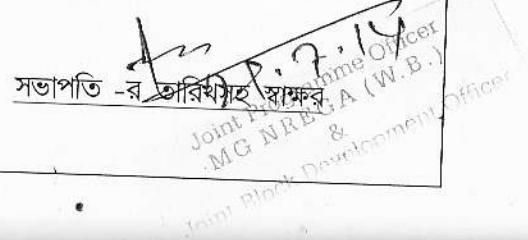 সভাপতি -র তারিখসহ স্বাক্ষর
Joint Programme Officer
MG NREGA (W.B.)
&
Joint Block Development Officer